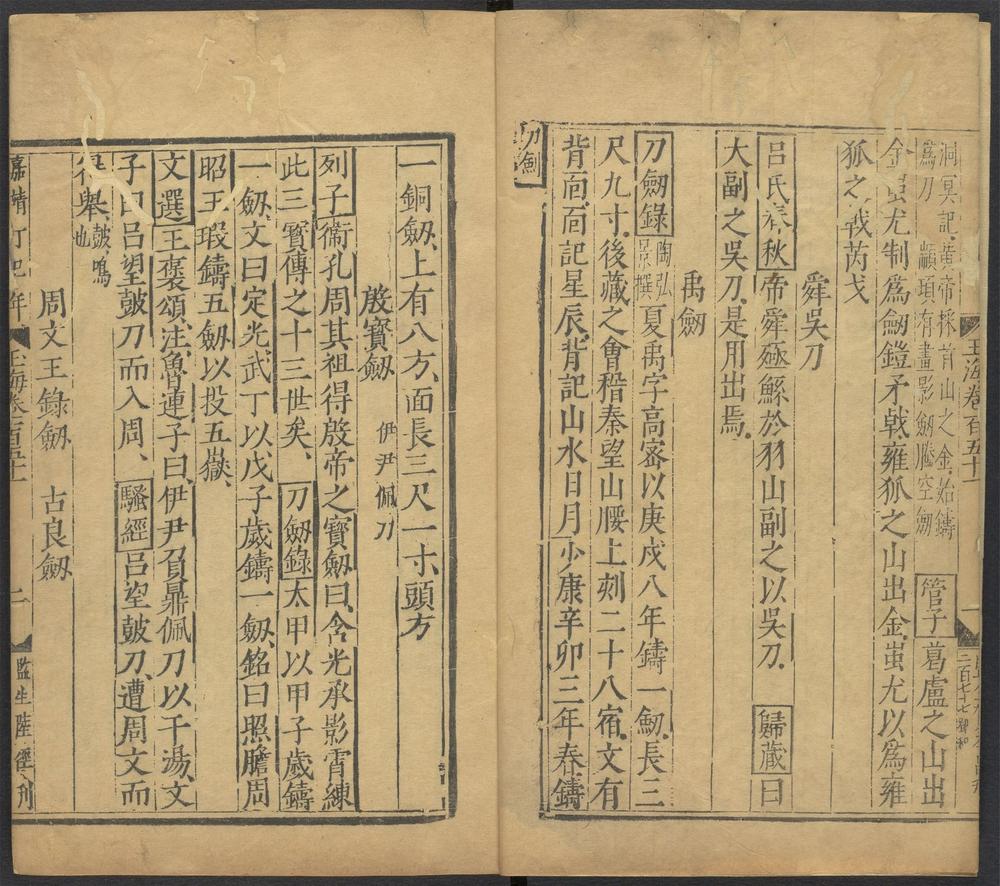 玉海卷百五十一
洞冥記黃帝採首山之金始鑄
爲刀 顓頊有畫影劒騰空劒
管子葛盧之山出
金蚩尤制爲劒鎧矛戟雍狐之山出金蚩尤以爲雍
狐之戟芮戈
舜吳刀
呂氏春秋帝舜殛鯀於羽山副之以吳刀 歸藏曰
大副之吳刀是用出禹
禹劒
刀劒錄陶弘景撰夏禹字高密以庚戌八年鑄一劒長三
尺九寸後藏之會稽秦望山腰上刻二十八宿文有
背面面記星辰背記山水日月少康辛卯三年春鑄
刀劒
一銅劒上有八方面長三尺一寸頭方
殷寶劒 伊尹佩刀
列子衞孔周其祖得殷帝之寶劒曰含光承影霄練
此三寶傳之十三世矣 刀劒錄太甲以甲子歲鑄
一劒文曰定光武丁以戊子歲鑄一劒銘曰照膽周
昭王瑕鑄五劒以投五嶽
文選王襃頌注魯連子曰伊尹負鼎佩刀以干湯文
子曰呂望皷刀而入周 騷經呂望皷刀遭周文而
得舉皷鳴也
周文王錄劒 古良劒
嘉靖丁巳年
玉海卷百五十一
二
監生陸 刊